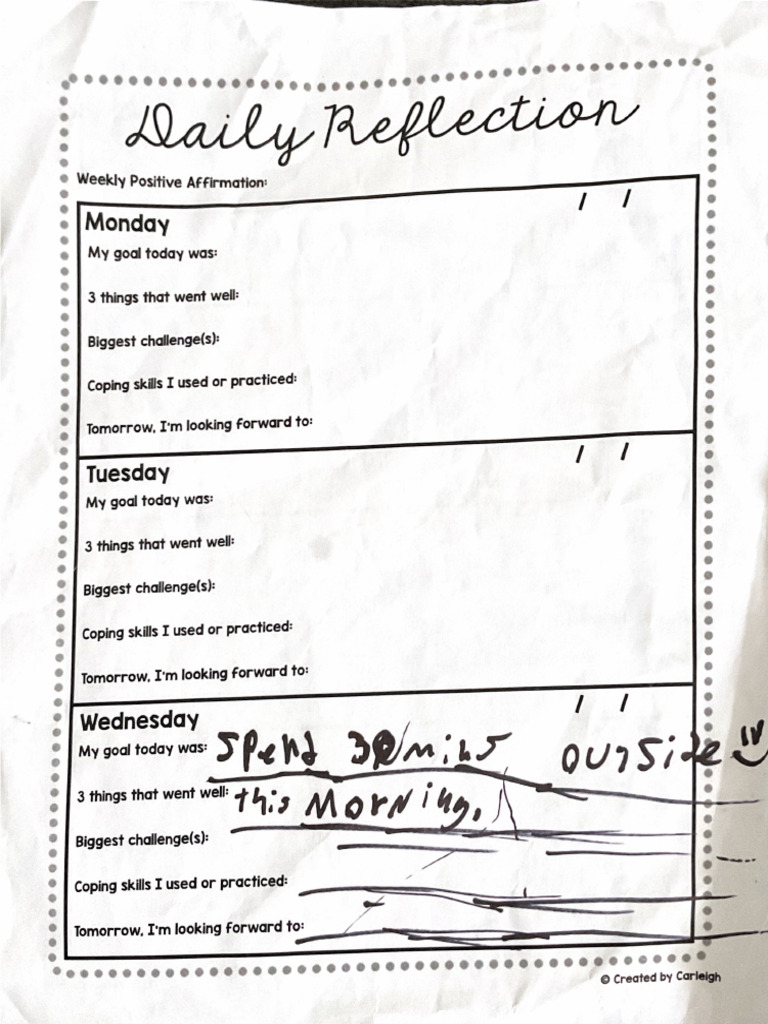 Daily Reflection
Weekly Positive Affirmation:
/ /
Monday
My goal today was:
3 things that went well:
Biggest challenge(s):
Coping skills I used or practiced:
Tomorrow, I'm looking forward to:
/ /
Tuesday
My goal today was:
3 things that went well:
Biggest challenge(s):
Coping skills I used or practiced:
Tomorrow, I'm looking forward to:
/ /
Wednesday
My goal today was: Spend 30 mins outside
3 things that went well: this Morning.
Biggest challenge(s):
Coping skills I used or practiced:
Tomorrow, I'm looking forward to:
© Created by Carleigh